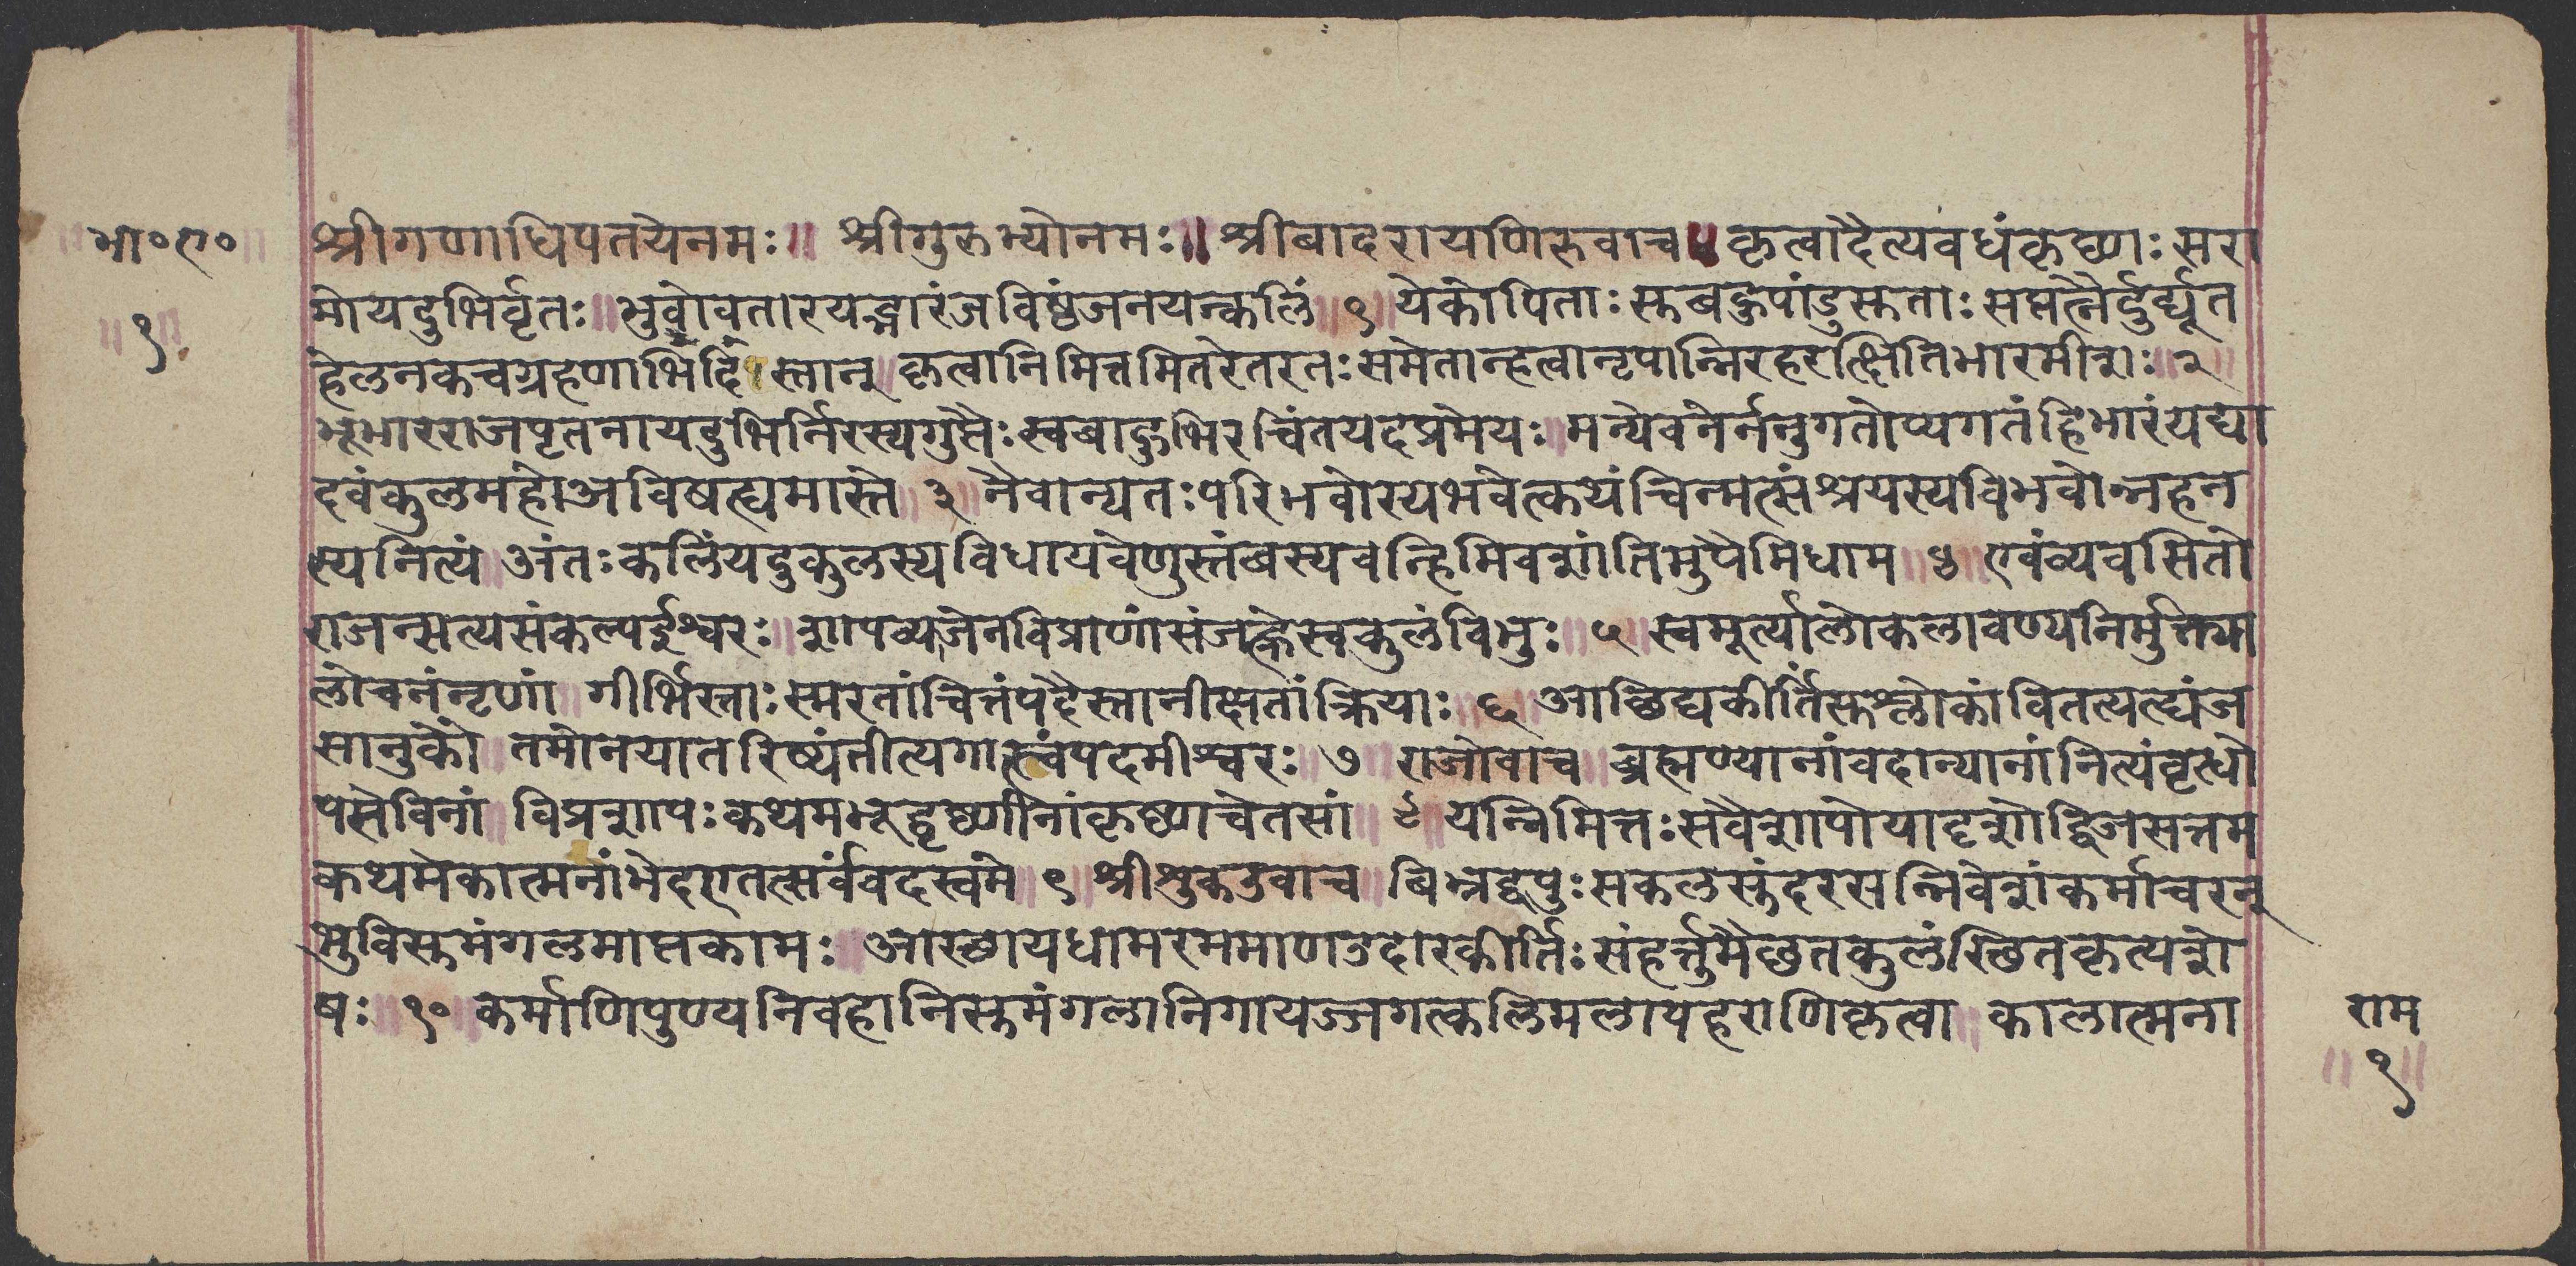 भा०ए०
१
श्रीगणाधिपतयेनमः॥ श्रीगुरुभ्योनमः॥ श्रीबादरायणिरुवाच॥ कृत्वादैत्यवधंकृष्णः सरा
मोयदुभिर्वृतः॥ भुवोवतारयद्भारंजविष्ठंजनयन्कलिं॥१॥ येकोपिताः सुबहुपांडुसुताः सपत्नैर्दुर्द्यूत
हेलनकचग्रहणाभिर्दिस्तान् कृत्वानिमित्तमितरेतरतः समेतान्हत्वानृपान्निरहरत्क्षितिभारमीशः॥२
भूभारराजपृतनायदुभिर्निरस्यगुप्तैः स्वबाहुभिरचिंतयदप्रमेयः॥ मन्येवनेर्ननुगतोप्यगतंहिभारंयद्या
दवंकुलमहोअविषह्यमास्ते॥३॥ नैवान्यतः परिभवोस्यभवेत्कथंचिन्मत्संश्रयस्यविभवोन्नहन
स्यनित्यं॥ अंतः कलिंयदुकुलस्यविधायवेणुस्तंबस्यवन्हिमिवशांतिमुपैमिधाम॥४॥ एवंव्यवसितो
राजन्सत्यसंकल्पईश्वरः॥ शापव्याजेनविप्राणांसंजह्नेस्वकुलंविभुः॥५॥ स्वमूर्त्यालोकलावण्यनिर्मुक्त्या
लोचनंनृणां॥ गीर्भिस्ताः स्मरतांचित्तंपदैस्तानीक्षतांक्रियाः॥६॥ आछिद्यकीर्तिंसुश्लोकांवितत्यह्यंज
सानुकौ॥ तमोनयातरिष्यंतीत्यगात्स्वंपदमीश्वरः॥७॥ राजोवाच॥ ब्रह्मण्यानांवदान्यानांनित्यंवृत्धो
पसेविनां॥ विप्रशापः कथमभूद्वृष्णीनांकृष्णचेतसां॥८॥ यन्निमित्तः सवैशापोयादृशोद्विजसत्तम
कथमेकात्मनांभेदएतत्सर्वंवदस्वमे॥९॥ श्रीशुकउवाच॥ बिभ्रद्वपुः सकलसुंदरसन्निवेशंकर्माचरन्
भुविसुमंगलमाप्तकामः॥ आस्छायधामरममाणउदारकीर्तिः संहर्त्तुमैछतकुलंस्छितकृत्यशे
षः॥१०॥ कर्माणिपुण्यनिवहानिसुमंगलानिगायज्जगत्कलिमलापहराणिकृत्वा॥ कालात्मना
राम
॥१॥